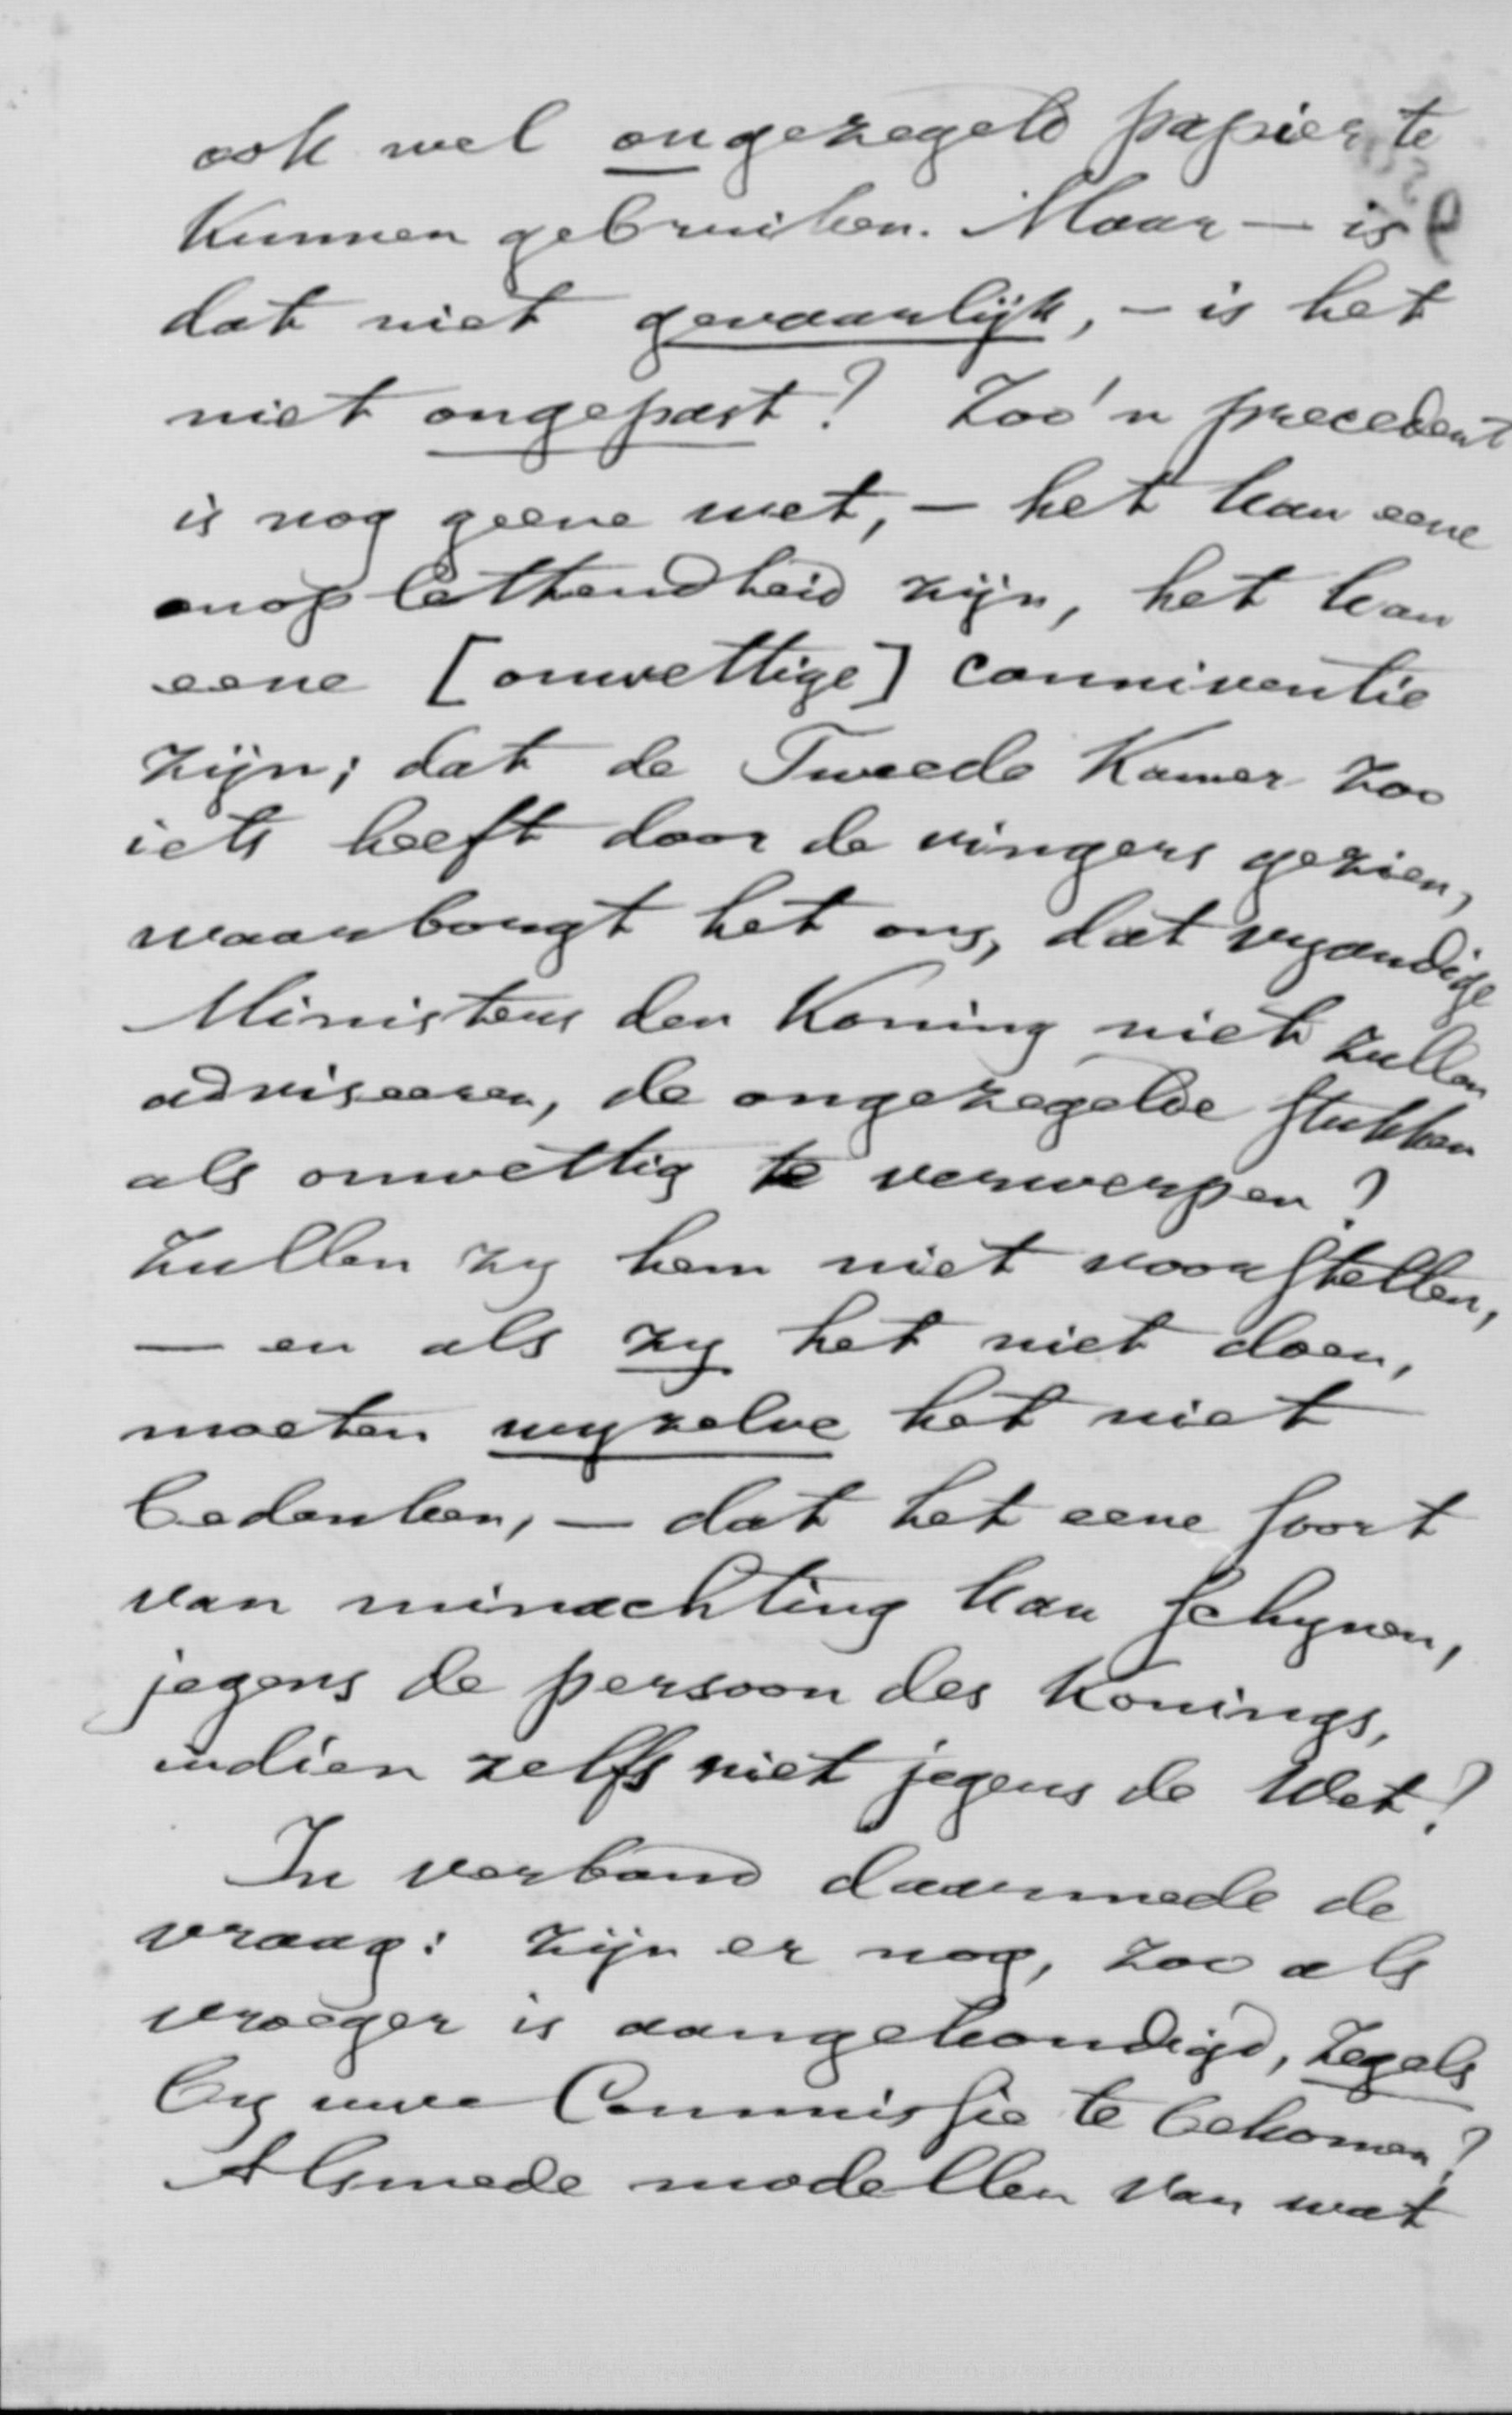 ook wel ongezegeld papier te
kunnen gebruiken. Maar — is
dat niet gevaarlijk, – is het
niet ongepast? Zoo'n precedent
is nog geene wet, – het kan eene
onoplettendheid zijn, het kan
eene [onwettige] conniventie
zijn; dat de Tweede Kamer zoo
iets heeft door de vingers gezien,
waarborgt het ons, dat vyandige
Ministers den Koning niet zullen
adviseeren, de ongezegelde stukken
als onwettig te verwerpen?
Zullen zy hem niet voorstellen,
— en als zy het niet doen,
moeten wyzelve het niet
bedenken, — dat het eene soort
van minachting kan schynen,
jegens de persoon des Konings,
indien zelfs niet jegens de Wet?
In verband daarmede de
vraag: zijn er nog, zoo als
vroeger is aangekondigd, zegels
by uwe Commissie te bekomen?
Alsmede modellen van wat